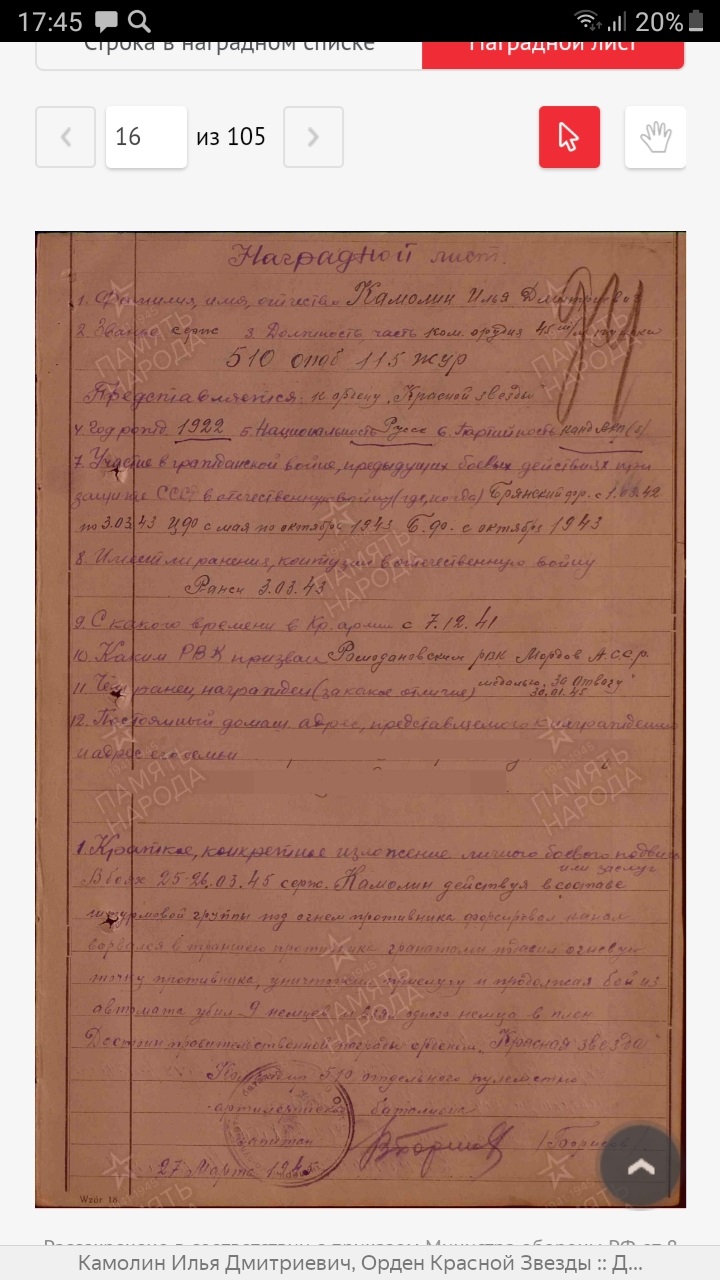 17:45
20%
Строка в наградном списке
Наградной лист
16 из 105
Наградной лист.
1. Фамилия, имя, отчество Камолин Илья Дмитриевич
2. Звание серж 3. Должность, часть ком. орудия 45 м/м пушки
510 опаб 115 жур
Представляется: к ордену "Красной звезды"
4. Год рожд. 1922 5. Национальность Русс 6. Партийность канд.
7. Участие в гражданской войне, предыдущих боевых действиях при
защите СССР в отечественную войну (где, когда) Брянский фр. с 1.03.42
по 3.03.43 ЦФ с мая по октябрь 1943 Б.Ф. с октября 1943
8. Имеет ли ранения, контузии в отечественную войну
Ранен 3.03.43
9. С какого времени в Кр. армии с 7.12.41
10. Каким РВК призван Ромодановским рвк Мордов А.С.С.Р.
11. Чем ранее награжден (за какое отличие) медалью "За Отвагу"
30.01.45
12. Постоянный домаш. адрес, представляемого к награждению
и адрес его семьи
1. Краткое, конкретное изложение личного боевого подвига
или заслуг
В боях 25-26.03.45 серж. Камолин действуя в составе
штурмовой группы под огнем противника форсировал канал
ворвался в траншею противника гранатами подавил огневую
точку противника, уничтожил прислугу и продолжая бой из
автомата убил 9 немцев и взял одного немца в плен
Достоин правительственной награды орденом "Красная звезда"
Командир 510 отдельного пулеметно
артиллерийского батальона
капитан /Борисов/
27 Марта 1945
Wzór 18.
ПАМЯТЬ НАРОДА
Камолин Илья Дмитриевич, Орден Красной Звезды :: Д...